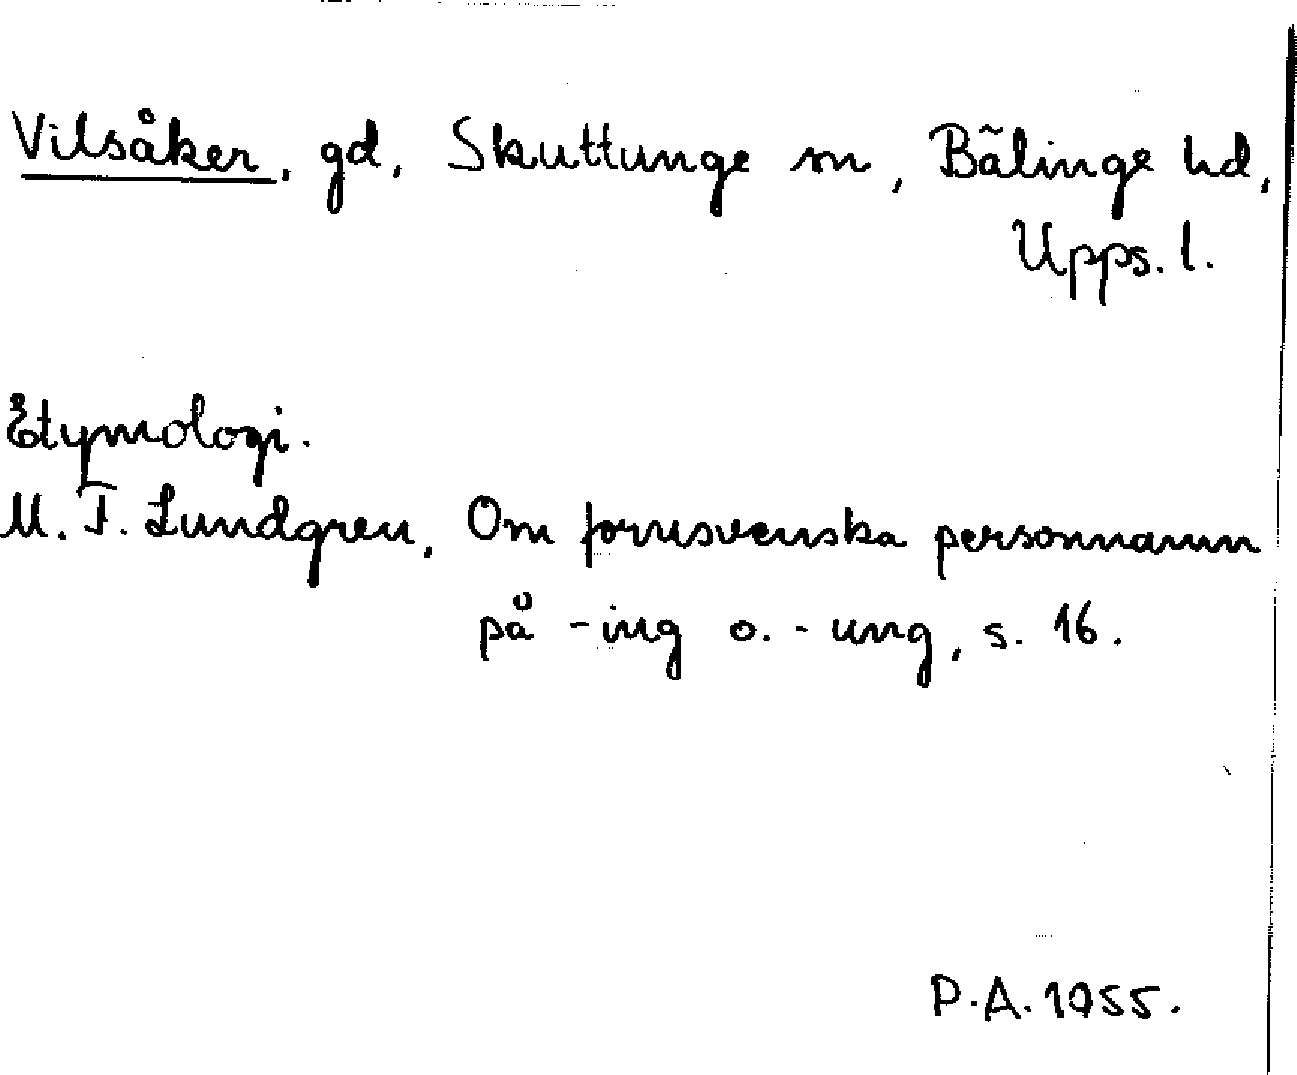 Vilsåker, gd, Skuttunge sn, Bälinge hd,
Upps. l.
Etymologi.
M. F. Lundgren, Om fornsvenska personnamn
på -ing o. -ung, s. 16.
P.A. 1955.